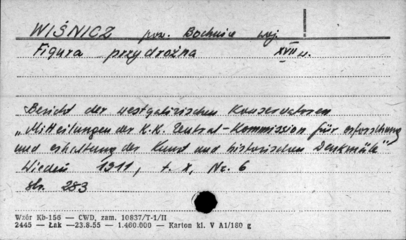 WIŚNICZ pow. Bochnia woj
Figura przydrożna XVII w.
Bericht der westgalizischen Konservatoren
„Mitteilungen der K.K. Zentral-Kommission für erforschung
und erhaltung der Kunst und historischen Denkmäle"
Wiedeń 1911, t. X, Nr. 6
str. 283
Wzór Kb-156 — CWD, zam. 10837/T-1/II
2445 — Łak —23.8.55 — 1.400.000 — Karton kl. V A1/180 g